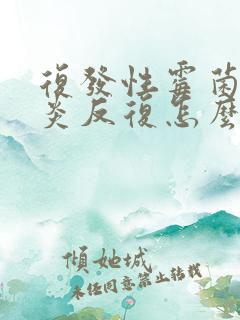 復發性霉菌
炎反復怎麽
傾她城
未经同意禁止转载